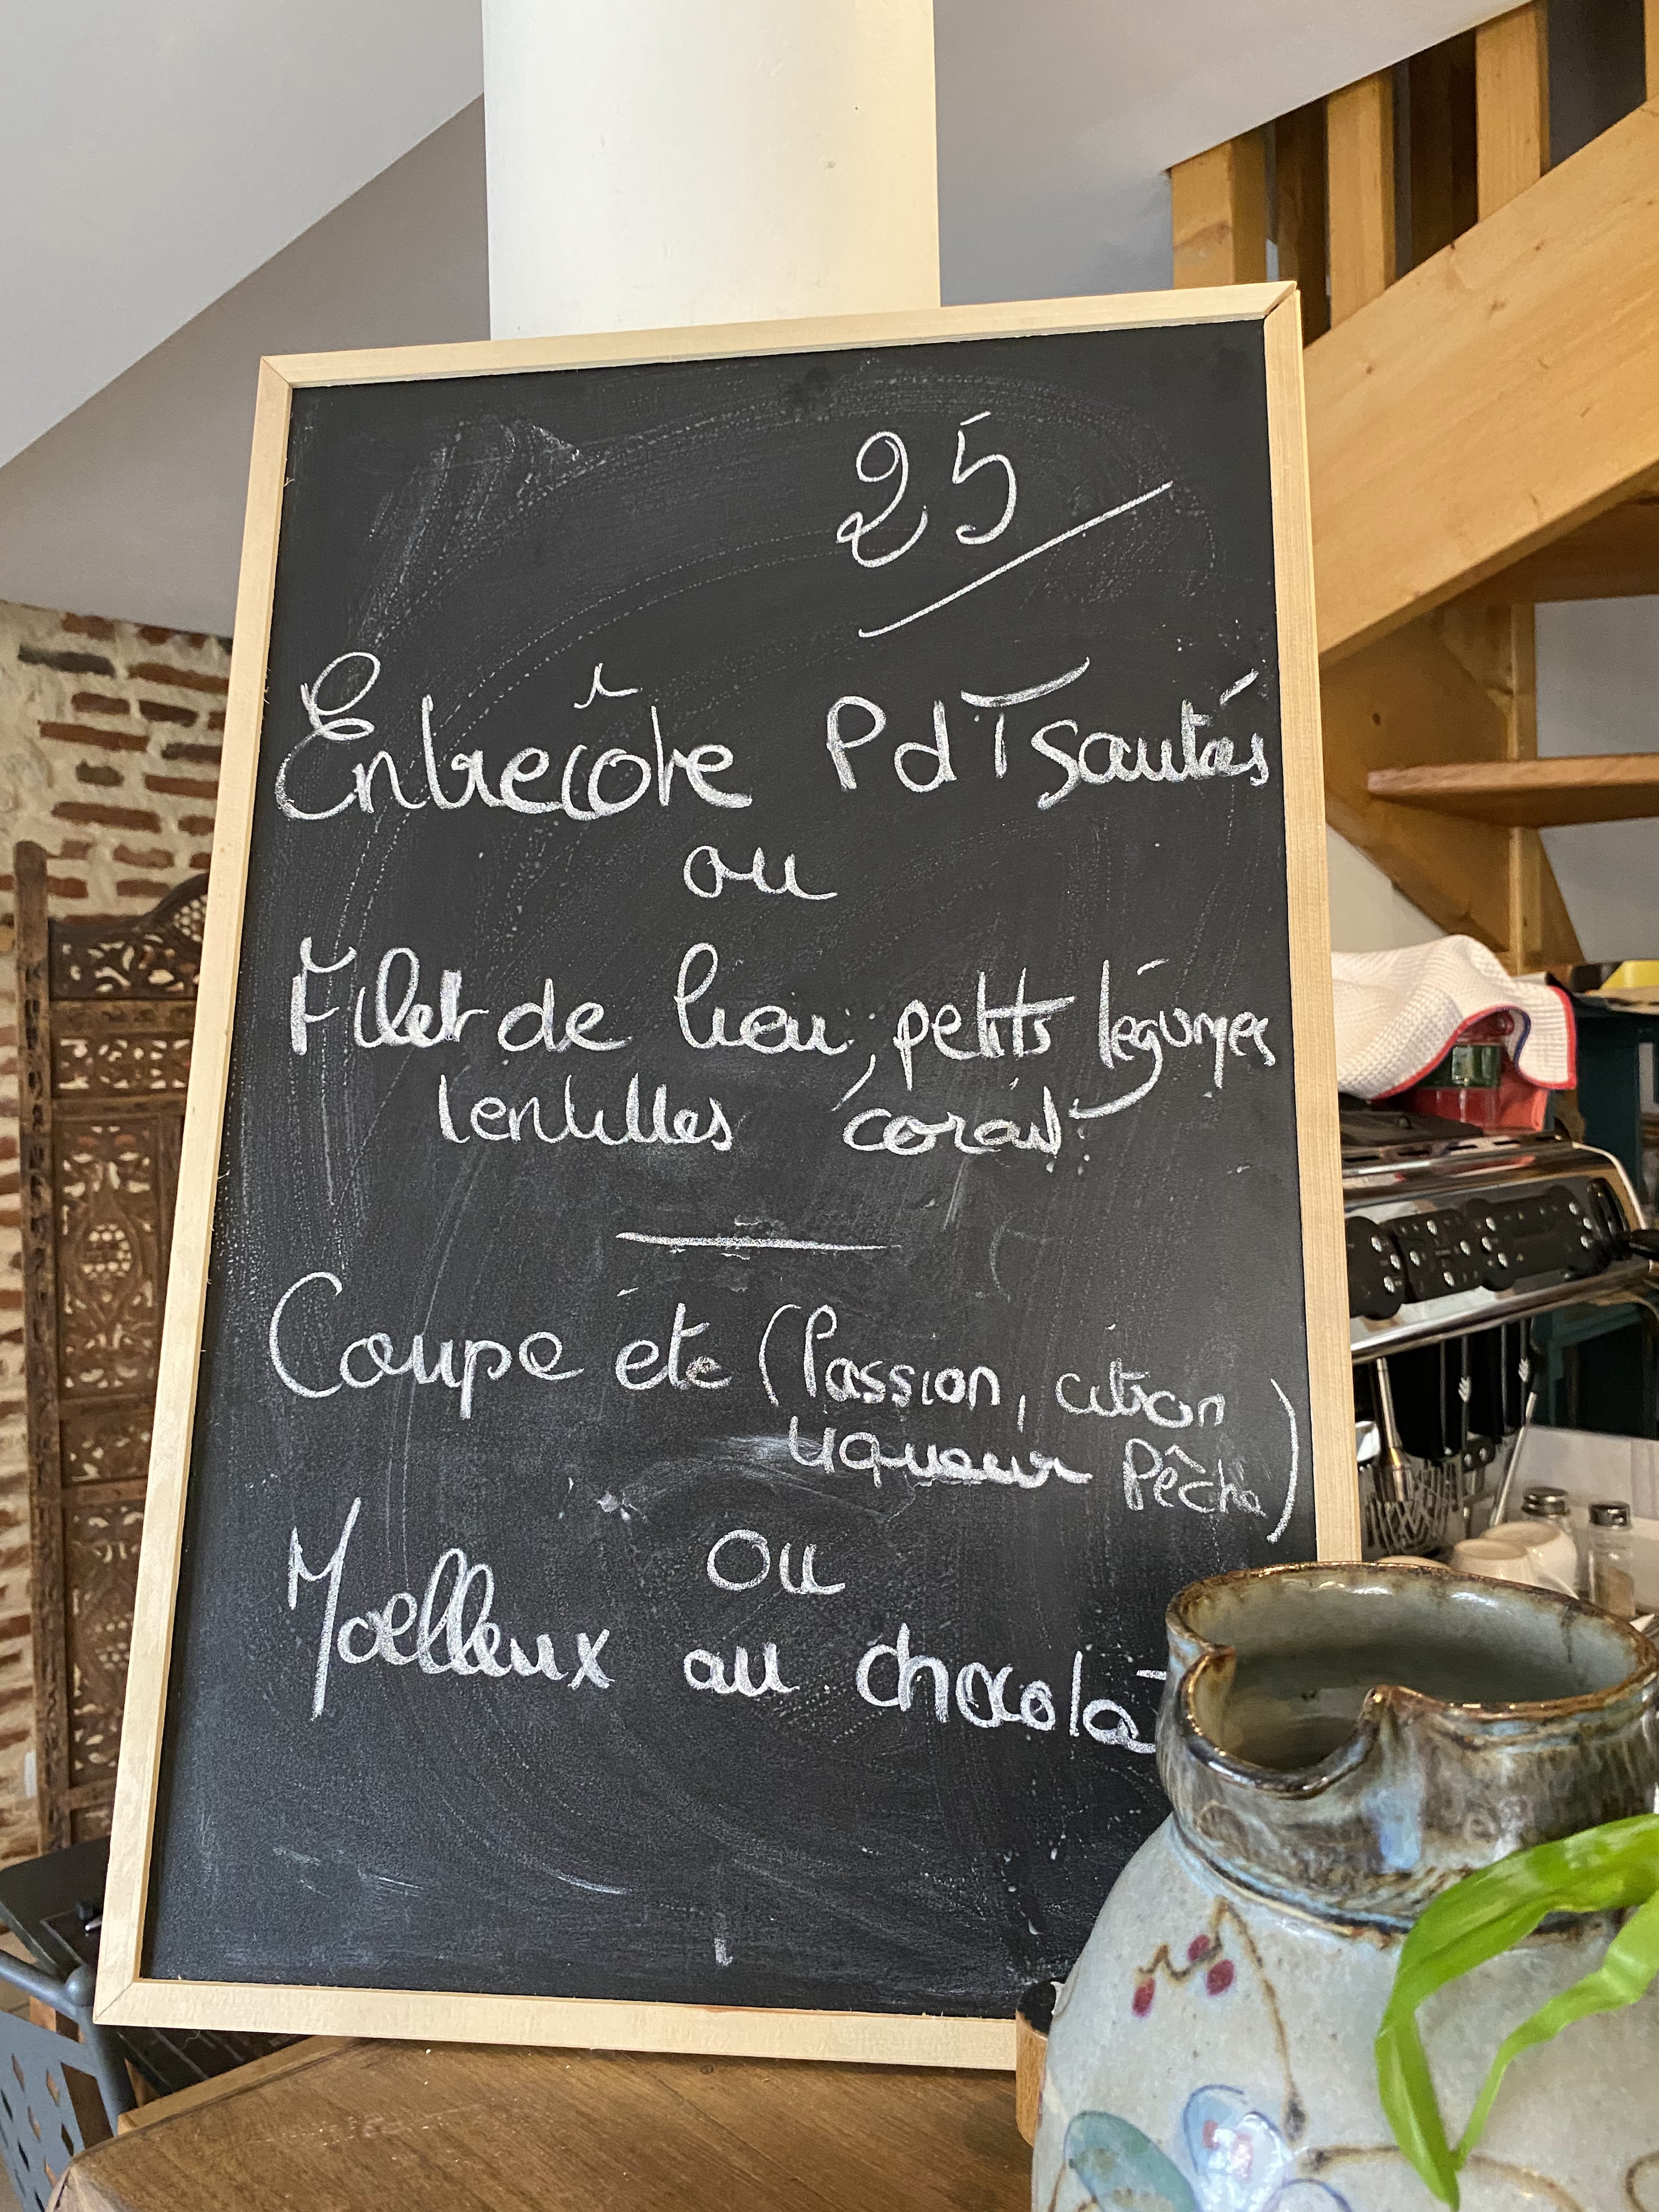 25
Entrecôte PdT sautés
ou
Filet de lieu, petits légumes
lentilles corail
Coupe été (Passion, citron
liqueur Pêche)
ou
Moelleux au chocolat